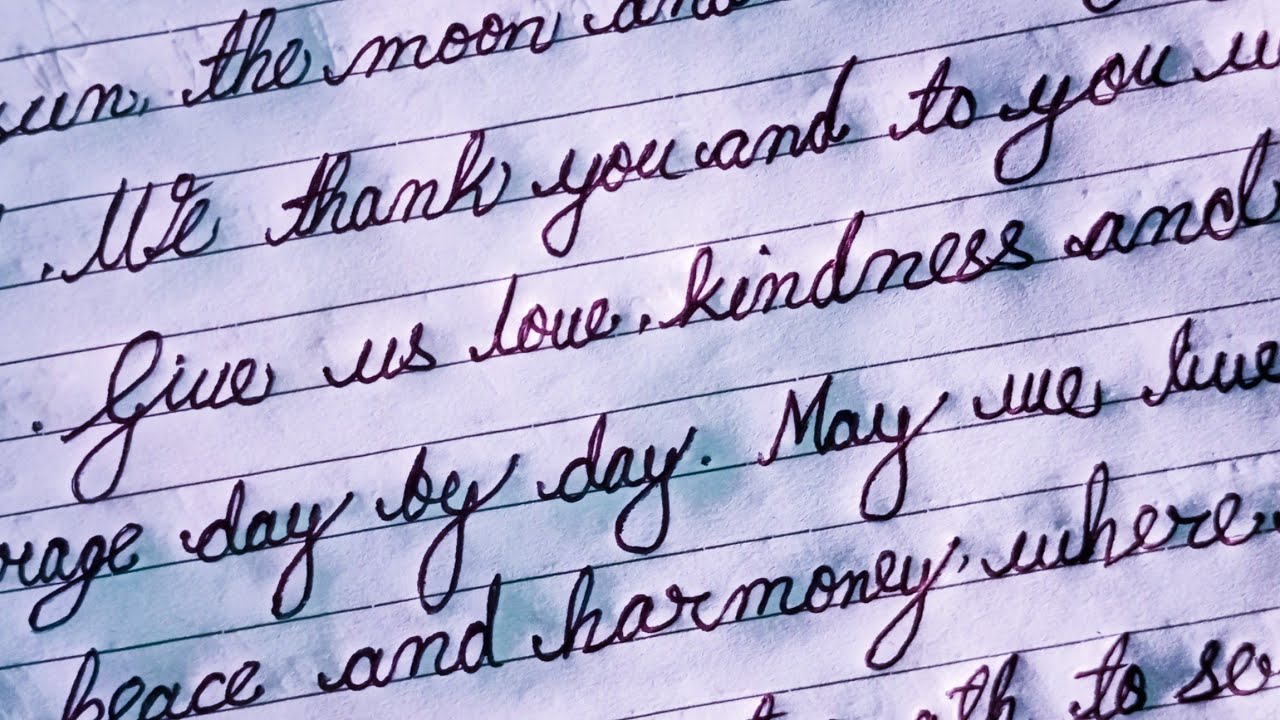 sun, the moon and
. We thank you and to you w
. Give us love, kindness and
rage day by day. May we live
peace and harmoney, where
th to se